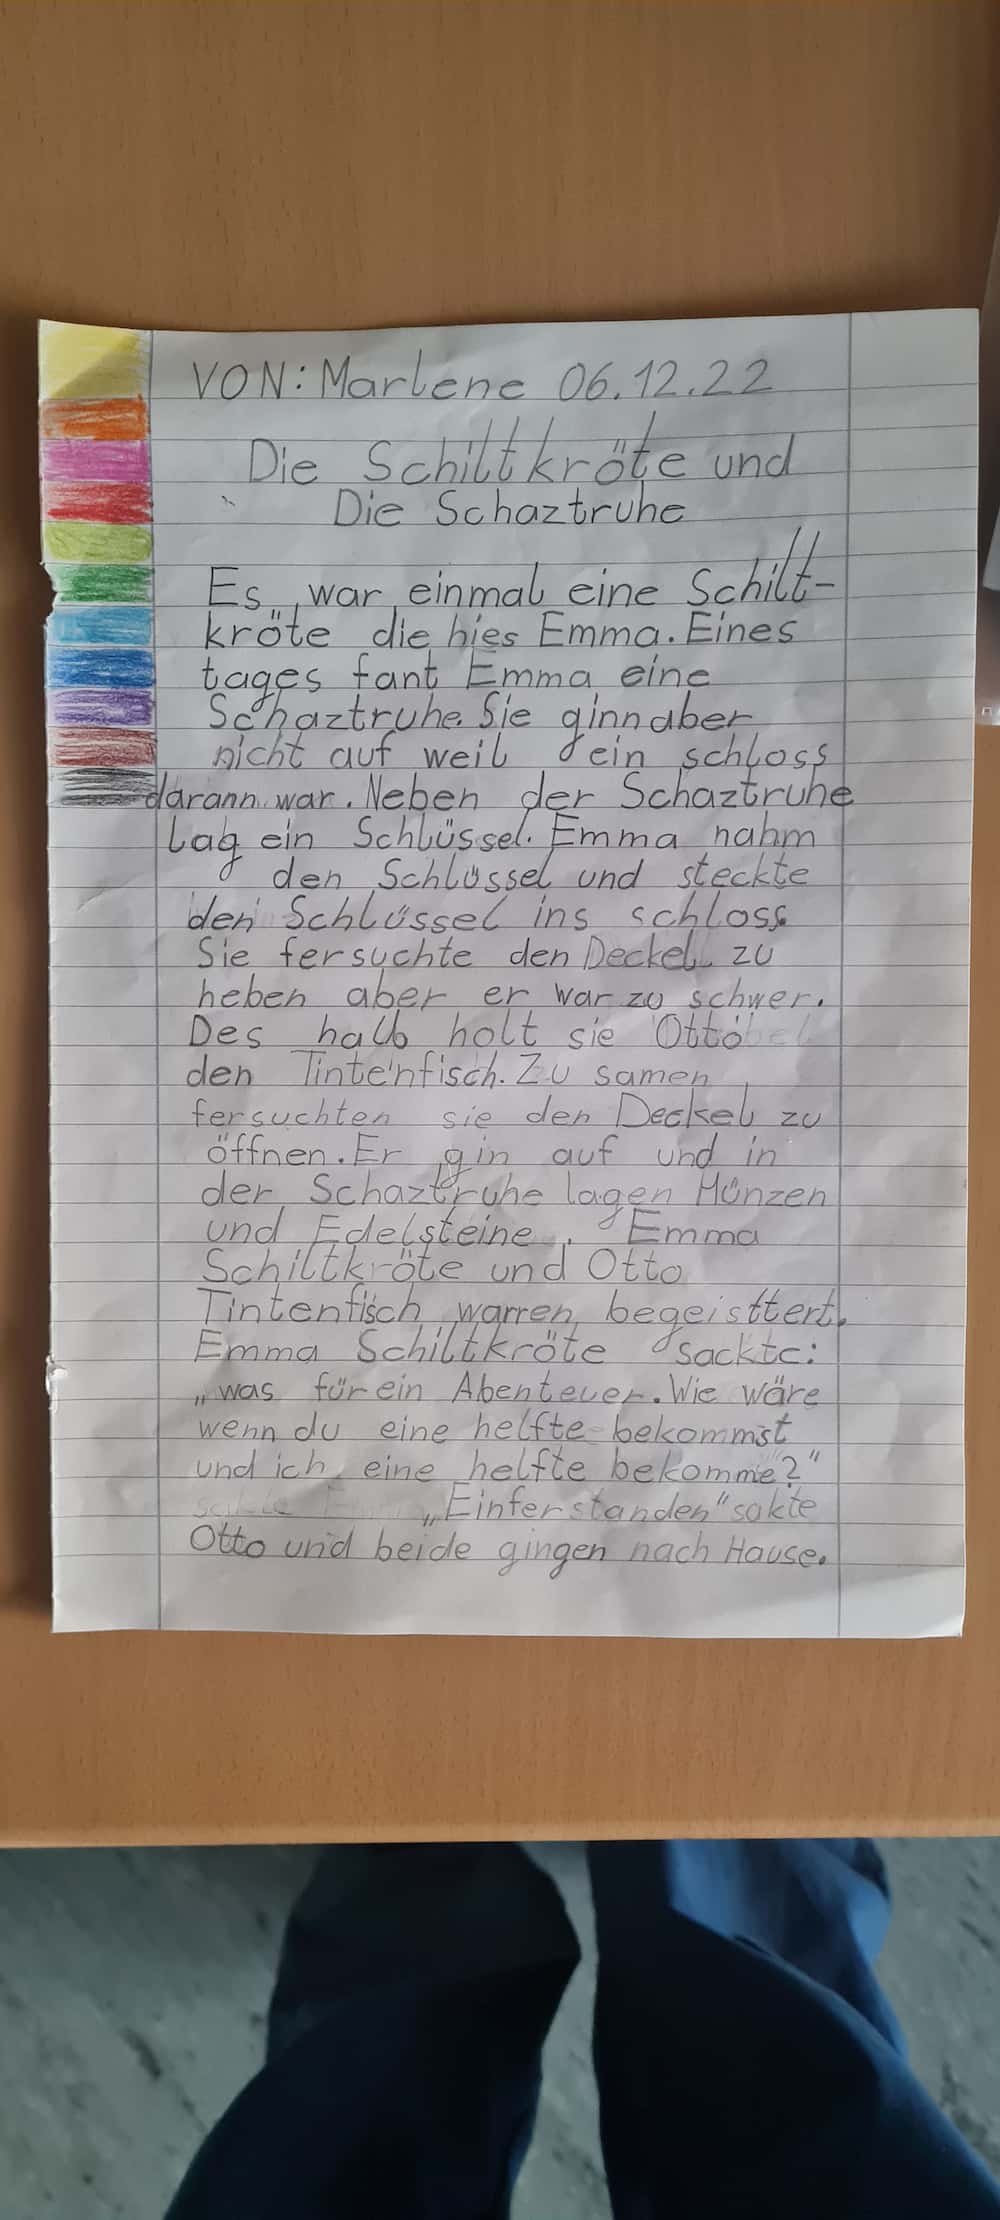 VON: Marlene 06.12.22
Die Schiltkröte und
Die Schaztruhe
Es war einmal eine Schilt-
kröte die hies Emma. Eines
tages fant Emma eine
Schaztruhe. Sie ginn aber
nicht auf weil ein schloss
darann war. Neben der Schaztruhe
lag ein Schlüssel. Emma nahm
den Schlüssel und steckte
den Schlüssel ins schloss.
Sie fersuchte den Deckel zu
heben aber er war zu schwer.
Des halb holt sie Otto
den Tintenfisch. Zu samen
fersuchten sie den Deckel zu
öffnen. Er gin auf und in
der Schaztruhe lagen Münzen
und Edelsteine. Emma
Schiltkröte und Otto
Tintenfisch warren begeisttert.
Emma Schiltkröte sackte:
„was für ein Abenteuer. Wie wäre
wenn du eine helfte bekommst
und ich eine helfte bekomme?"
„Einferstanden" sakte
Otto und beide gingen nach Hause.